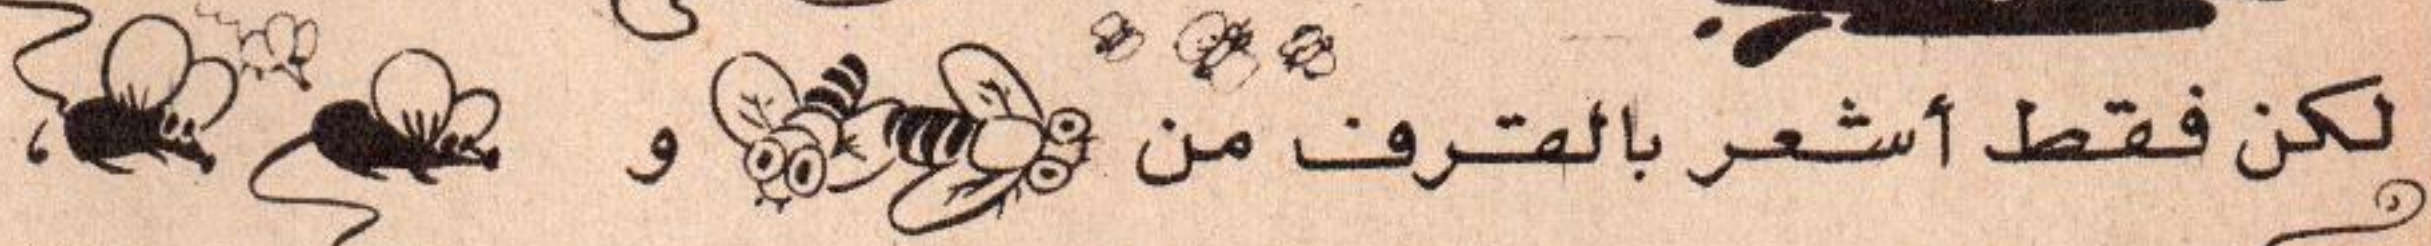 لكن فقط أشعر بالقرف من و